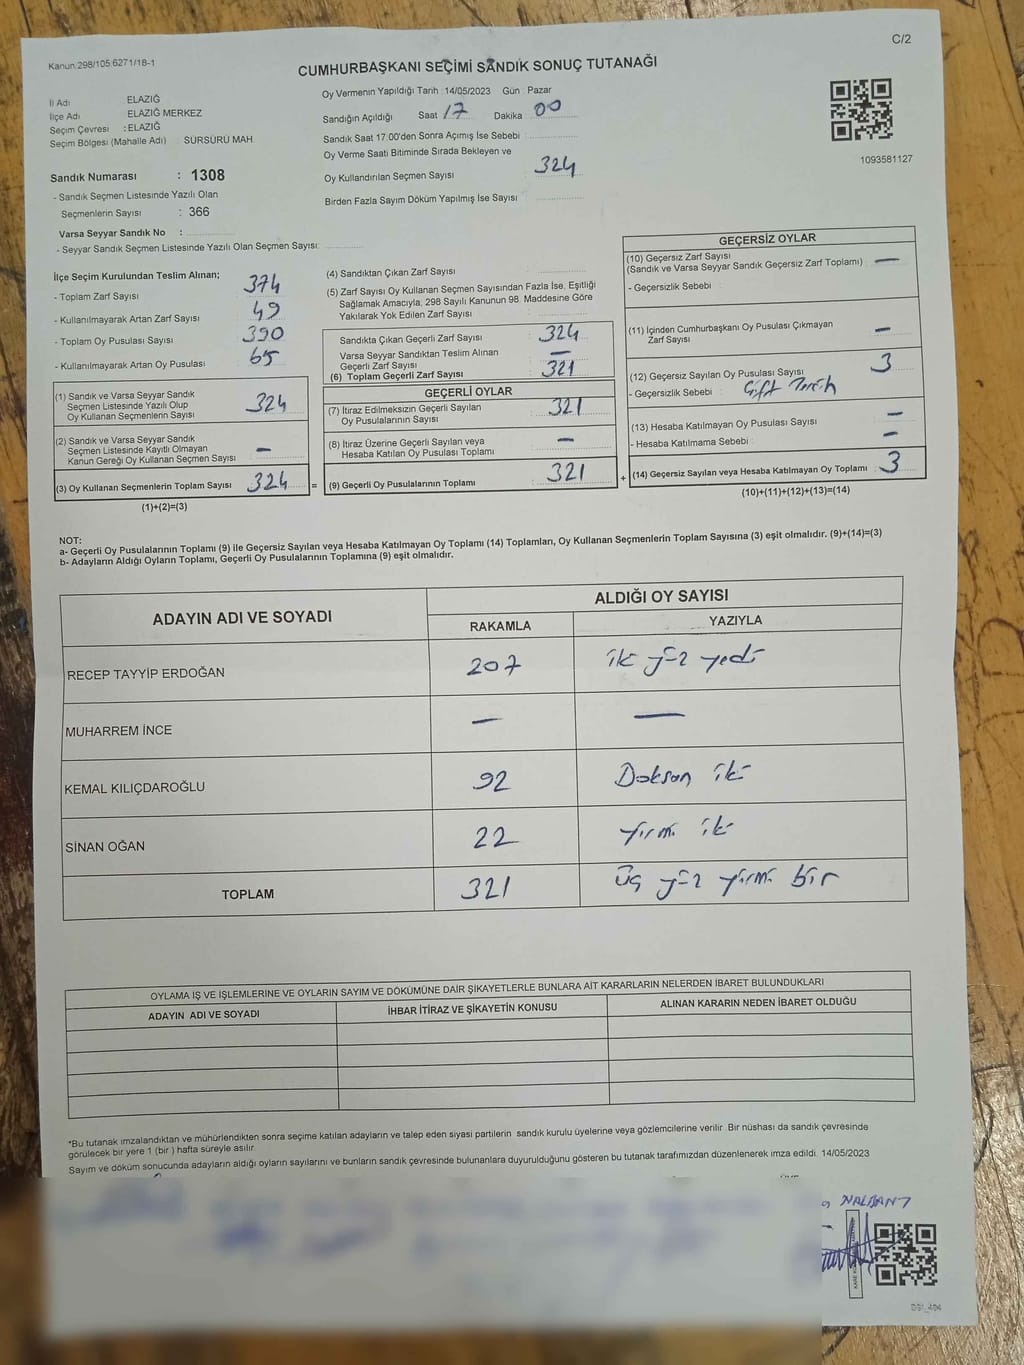 C/2
Kanun.298/105 6271/18-1
CUMHURBAŞKANI SEÇİMİ SANDIK SONUÇ TUTANAĞI
İl Adı ELAZIĞ
İlçe Adı ELAZIĞ MERKEZ
Seçim Çevresi : ELAZIĞ
Seçim Bölgesi (Mahalle Adı) SÜRSÜRÜ MAH
Sandık Numarası : 1308
- Sandık Seçmen Listesinde Yazılı Olan
Seçmenlerin Sayısı : 366
Varsa Seyyar Sandık No :
- Seyyar Sandık Seçmen Listesinde Yazılı Olan Seçmen Sayısı:
Oy Vermenin Yapıldığı Tarih :14/05/2023 Gün : Pazar
Sandığın Açıldığı Saat 17 Dakika 00
Sandık Saat 17:00'den Sonra Açımış İse Sebebi :
Oy Verme Saati Bitiminde Sırada Bekleyen ve
Oy Kullandırılan Seçmen Sayısı 324
Birden Fazla Sayım Döküm Yapılmış İse Sayısı :
1093581127
İlçe Seçim Kurulundan Teslim Alınan;
- Toplam Zarf Sayısı 374
- Kullanılmayarak Artan Zarf Sayısı 49
- Toplam Oy Pusulası Sayısı 390
- Kullanılmayarak Artan Oy Pusulası 65
(1) Sandık ve Varsa Seyyar Sandık
Seçmen Listesinde Yazılı Olup
Oy Kullanan Seçmenlerin Sayısı 324
(2) Sandık ve Varsa Seyyar Sandık
Seçmen Listesinde Kayıtlı Olmayan
Kanun Gereği Oy Kullanan Seçmen Sayısı —
(3) Oy Kullanan Seçmenlerin Toplam Sayısı 324 =
(1)+(2)=(3)
(4) Sandıktan Çıkan Zarf Sayısı
(5) Zarf Sayısı Oy Kullanan Seçmen Sayısından Fazla İse, Eşitliği
Sağlamak Amacıyla, 298 Sayılı Kanunun 98. Maddesine Göre
Yakılarak Yok Edilen Zarf Sayısı
Sandıkta Çıkan Geçerli Zarf Sayısı 324
Varsa Seyyar Sandıktan Teslim Alınan
Geçerli Zarf Sayısı —
(6) Toplam Geçerli Zarf Sayısı 321
GEÇERLİ OYLAR
(7) İtiraz Edilmeksizin Geçerli Sayılan
Oy Pusulasının Sayısı 321
(8) İtiraz Üzerine Geçerli Sayılan veya
Hesaba Katılan Oy Pusulası Toplamı —
(9) Geçerli Oy Pusulalarının Toplamı 321 +
GEÇERSİZ OYLAR
(10) Geçersiz Zarf Sayısı
(Sandık ve Varsa Seyyar Sandık Geçersiz Zarf Toplamı) —
- Geçersizlik Sebebi :
(11) İçinden Cumhurbaşkanı Oy Pusulası Çıkmayan
Zarf Sayısı —
(12) Geçersiz Sayılan Oy Pusulası Sayısı 3
- Geçersizlik Sebebi : Çift Tercih
(13) Hesaba Katılmayan Oy Pusulası Sayısı —
- Hesaba Katılmama Sebebi : —
(14) Geçersiz Sayılan veya Hesaba Katılmayan Oy Toplamı 3
(10)+(11)+(12)+(13)=(14)
NOT:
a- Geçerli Oy Pusulalarının Toplamı (9) ile Geçersiz Sayılan veya Hesaba Katılmayan Oy Toplamı (14) Toplamları, Oy Kullanan Seçmenlerin Toplam Sayısına (3) eşit olmalıdır. (9)+(14)=(3)
b- Adayların Aldığı Oyların Toplamı, Geçerli Oy Pusulalarının Toplamına (9) eşit olmalıdır.
ADAYIN ADI VE SOYADI
ALDIĞI OY SAYISI
RAKAMLA YAZIYLA
RECEP TAYYİP ERDOĞAN 207 iki yüz yedi
MUHARREM İNCE — —
KEMAL KILIÇDAROĞLU 92 Doksan iki
SİNAN OĞAN 22 yirmi iki
TOPLAM 321 üç yüz yirmi bir
OYLAMA İŞ VE İŞLEMLERİNE VE OYLARIN SAYIM VE DÖKÜMÜNE DAİR ŞİKAYETLERLE BUNLARA AİT KARARLARIN NELERDEN İBARET BULUNDUKLARI
ADAYIN ADI VE SOYADI İHBAR İTİRAZ VE ŞİKAYETİN KONUSU ALINAN KARARIN NEDEN İBARET OLDUĞU
*Bu tutanak imzalandıktan ve mühürlendikten sonra seçime katılan adayların ve talep eden siyasi partilerin sandık kurulu üyelerine veya gözlemcilerine verilir. Bir nüshası da sandık çevresinde
görülecek bir yere 1 (bir ) hafta süreyle asılır.
Sayım ve döküm sonucunda adayların aldığı oyların sayılarını ve bunların sandık çevresinde bulunanlara duyurulduğunu gösteren bu tutanak tarafımızdan düzenlenerek imza edildi. 14/05/2023
NALBANT